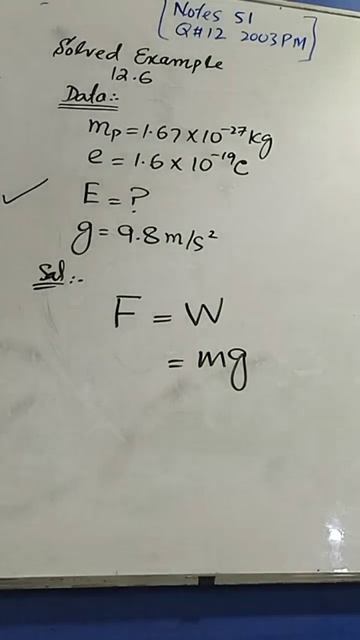 [Notes 51
Q#12 2003PM]
Solved Example
12.6
Data:-
mp = 1.67 × 10⁻²⁷ kg
e = 1.6 × 10⁻¹⁹ C
E = ?
g = 9.8 m/s²
Sol:-
F = W
= mg